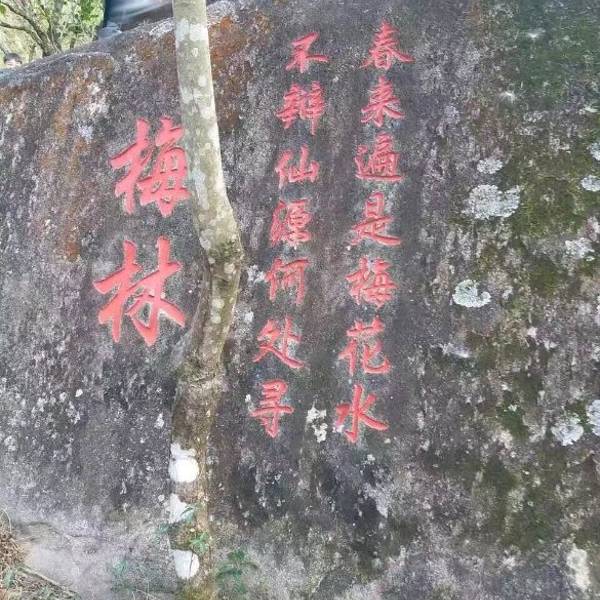 春来遍是梅花水
不辩仙源何处寻
梅林